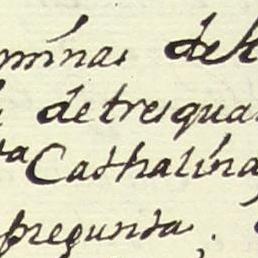 minas del
detresqua
ta Cathalina
pregunta,